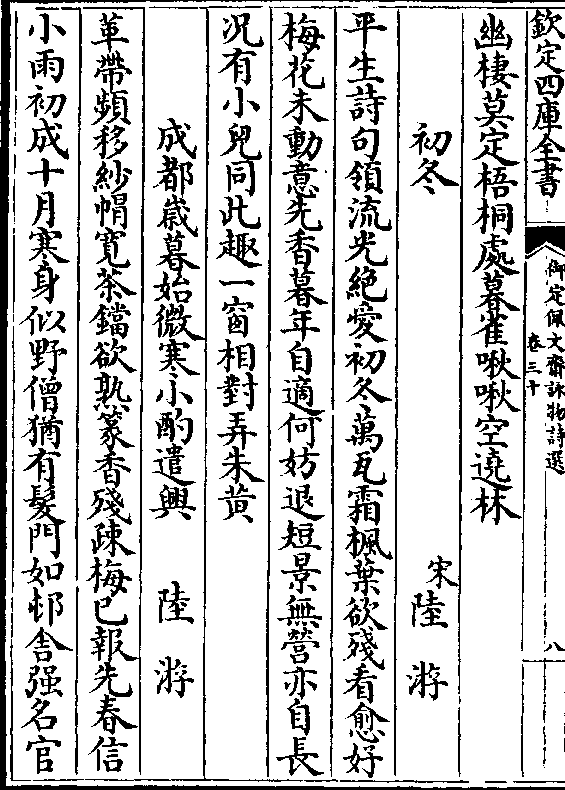 欽定四庫全書
御定佩文齋詠物詩選
卷三十
八
幽棲莫定梧桐處暮雀啾啾空遶林
初冬
宋陸游
平生詩句領流光絶愛初冬萬瓦霜楓葉欲殘看愈好
梅花未動意先香暮年自適何妨退短景無營亦自長
况有小兒同此趣一窗相對弄朱黄
成都歲暮始微寒小酌遣興
陸游
革帶頻移紗帽寛茶鐺欲熟篆香殘疎梅已報先春信
小雨初成十月寒身似野僧猶有髮門如邨舍强名官